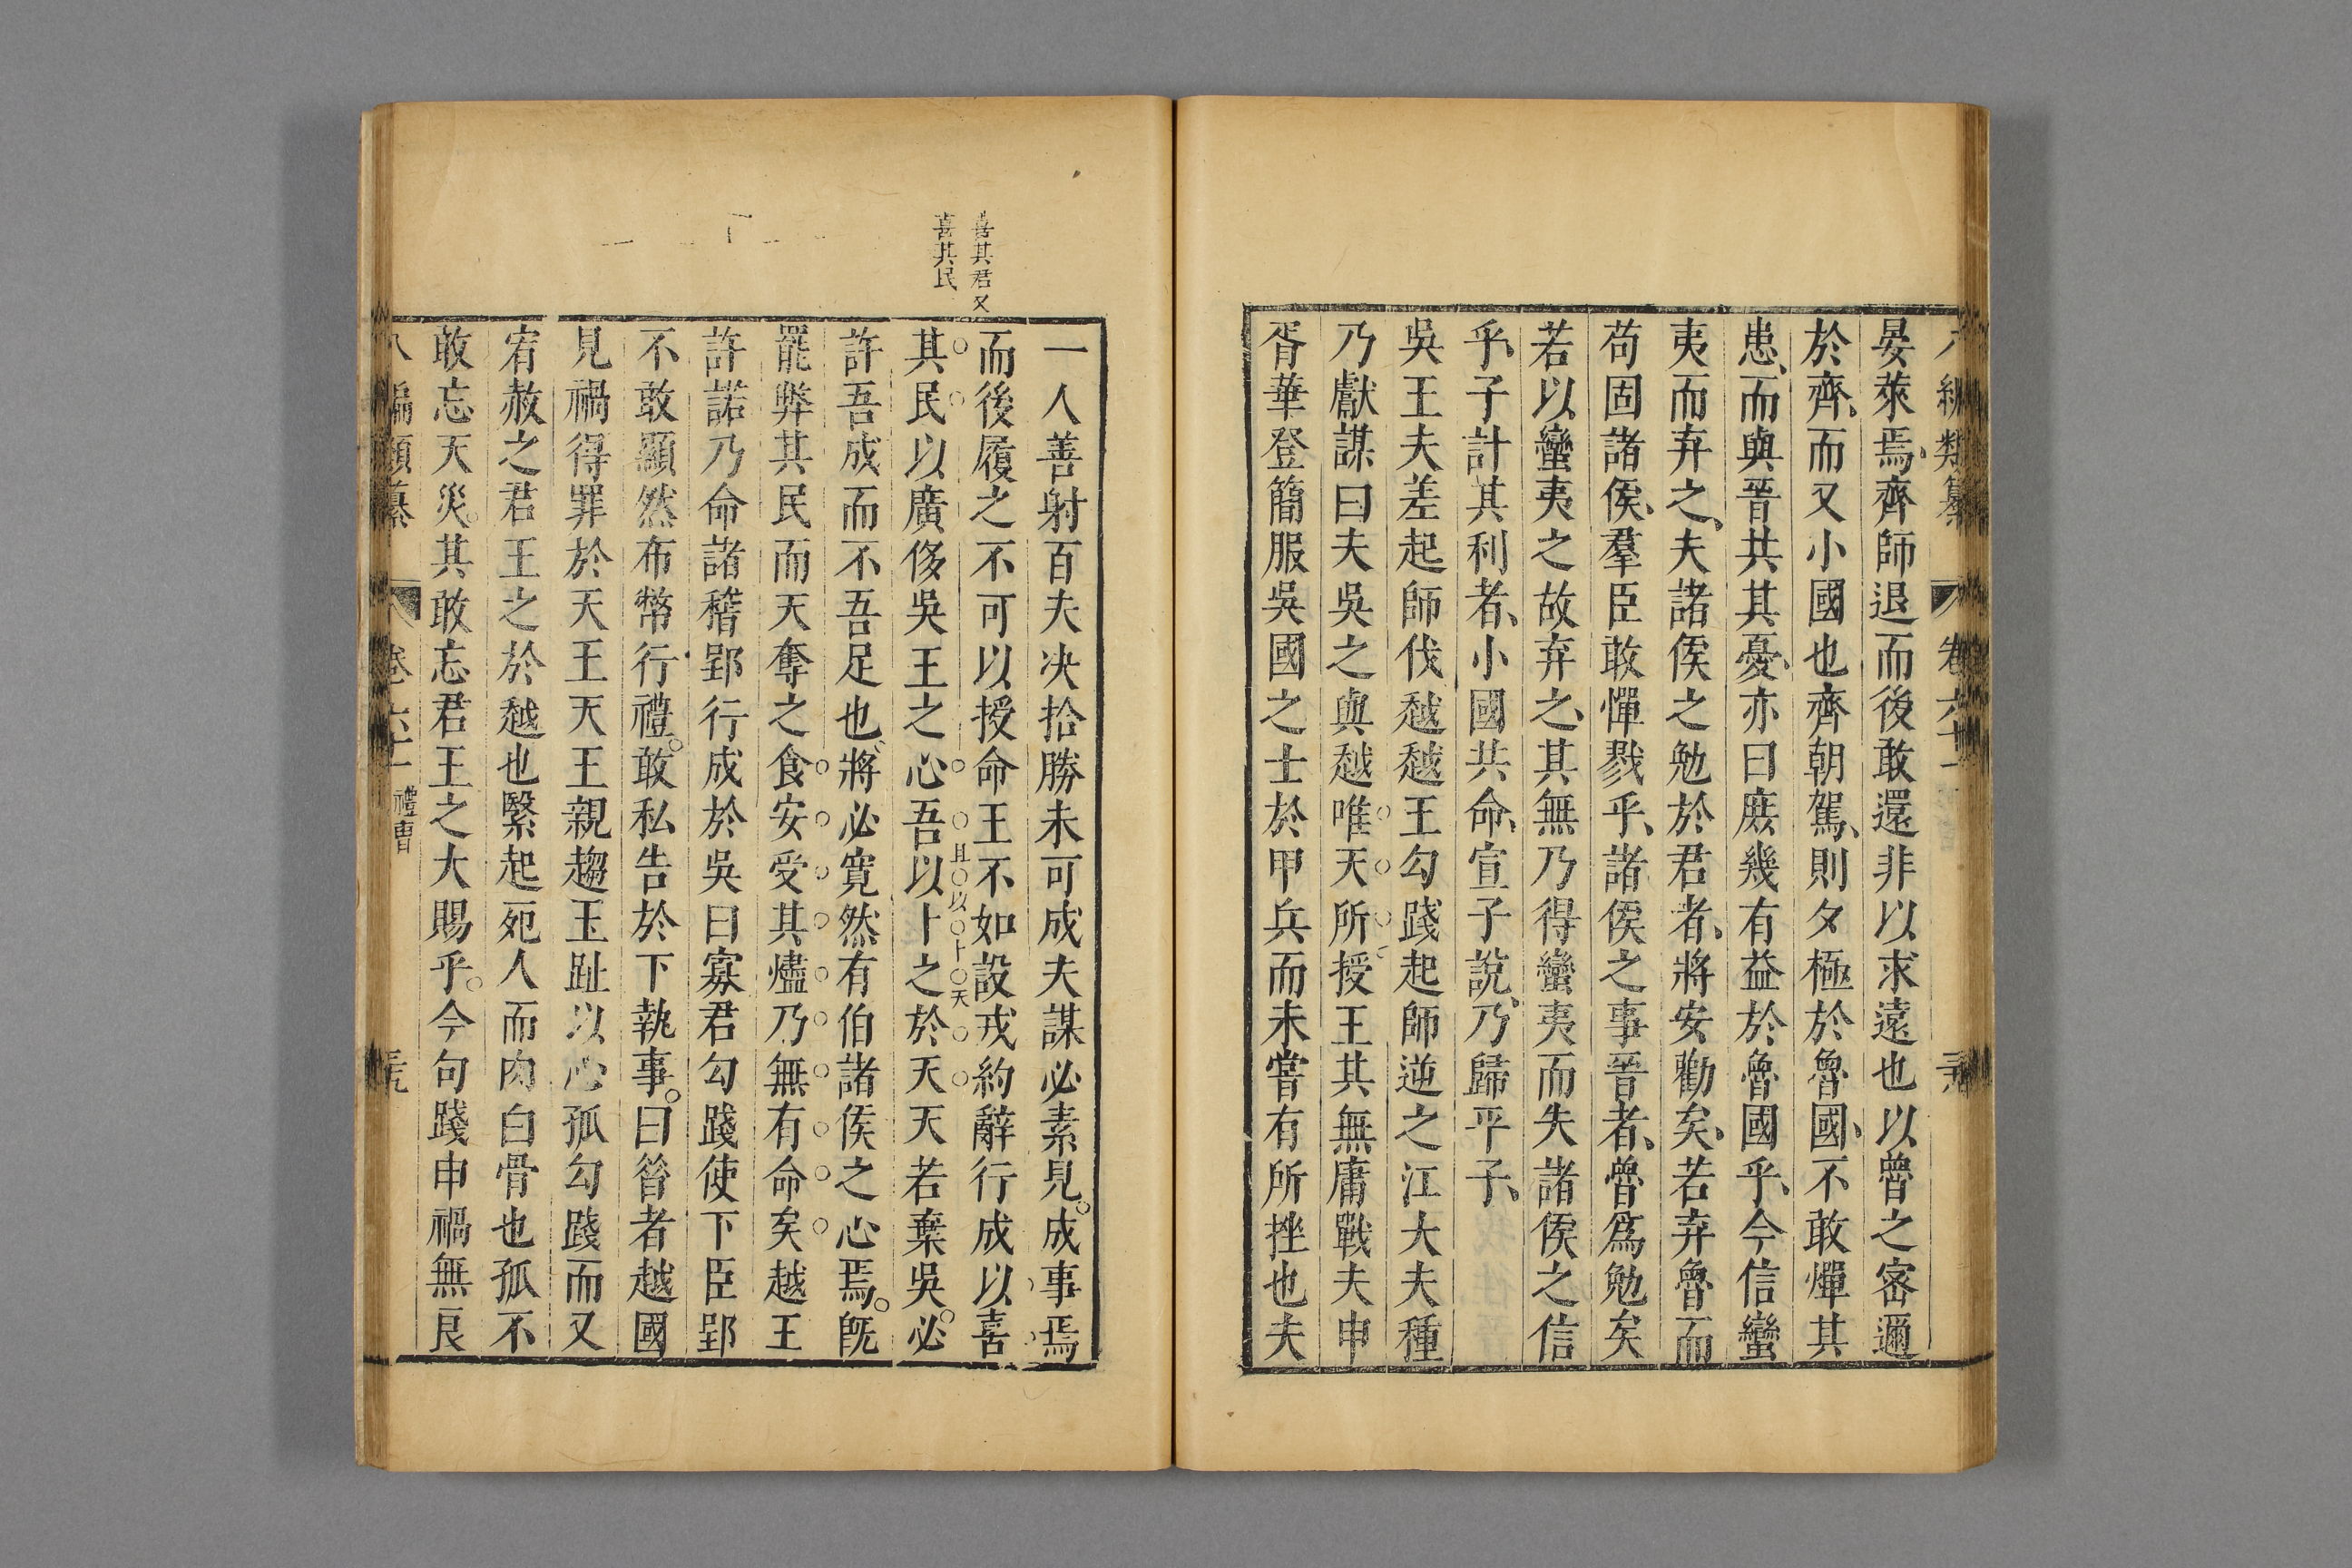 晏萊焉齊師退而後敢還非以求遠也以魯之密邇
於齊而又小國也齊朝駕則夕極於魯國不敢憚其
患而與晉共其憂亦曰庶幾有益於魯國乎今信蠻
夷而弃之夫諸侯之勉於君者將安勸矣若弃魯而
苟固諸侯羣臣敢憚戮乎諸侯之事晉者魯爲勉矣
若以蠻夷之故弃之其無乃得蠻夷而失諸侯之信
乎子計其利者小國共命宣子說乃歸平子
吳王夫差起師伐越越王勾踐起師逆之江大夫種
乃獻謀曰夫吳之與越唯天所授王其無庸戰夫申
胥華登簡服吳國之士於甲兵而未嘗有所挫也夫
一人善射百夫決拾勝未可成夫謀必素見成事焉
而後履之不可以授命王不如設戎約辭行成以喜
其民以廣侈吳王之心吾以卜之於天天若棄吳必
許吾成而不吾足也將必寬然有伯諸侯之心焉旣
罷弊其民而天奪之食安受其燼乃無有命矣越王
許諾乃命諸稽郢行成於吳曰寡君勾踐使下臣郢
不敢顯然布幣行禮敢私告於下執事曰昝者越國
見禍得罪於天王天王親趨玉趾以心孤勾踐而又
宥赦之君王之於越也緊起死人而肉白骨也孤不
敢忘天災其敢忘君王之大賜乎今句踐申禍無良
喜其君又
喜其民
且以卜天
八編類纂 卷六十 禮曹